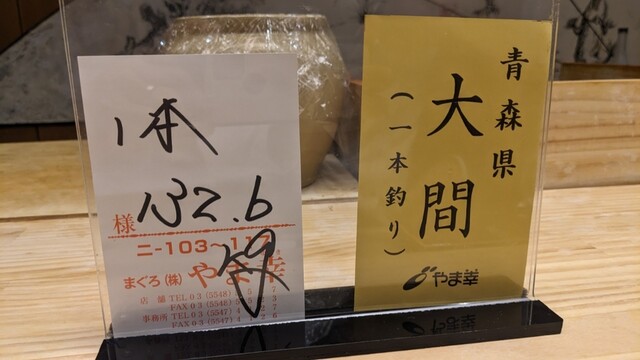 1本
132.6
kg
様
ニ-103~117
まぐろ(株) やま幸
店舗 TEL 03 (5548)
FAX 03 (5548)
事務所 TEL 03 (5547)
FAX 03 (5547)
青森県
大間
(一本釣り)
やま幸